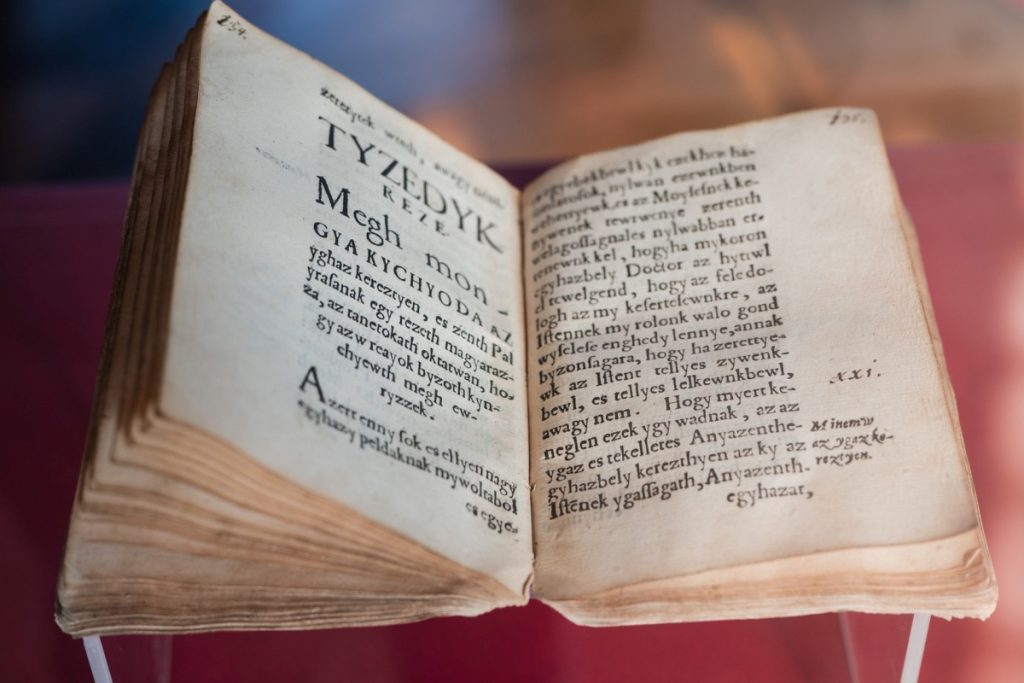 154.
TYZEDYK
REZE
Megh mon-
GYA KYCHYODA AZ
yghaz kereztyen, es zenth Pal
yraſanak egy rezeth magyaraz-
za, az tanetokath oktatwan, ho-
gy az w reayok byzoth kyn-
chyewth megh ew-
ryzzek.
Azert enny ſok es ellyen nagy
egyhazy peldaknak mywoltabol
es egye-
155.
nywenek tewrwenye zerenth
welagoſſagnales nylwabban er-
tenewnkkel, hogyha mykoron
egyhazbely Doctor az hytwl
el tewelgend, hogy az feledo-
logh az my keſerteſewnkre, az
Iſtennek my rolonk walo gond
wyſeleſe enghedy lennye, annak
byzonſagara, hogy ha zerettye-
wk az Iſtent tellyes zywenk-
bewl, es tellyes lelkewnkbewl,
awagy nem. Hogy myert ke-
neglen ezek ygy wadnak, az az
ygaz es tekelletes Anyazenthe-
gyhazbely kerezthyen az ky az
Iſtenek ygaſſagath, Anyazenth-
egyhazat,
XXI.
Minemw
az ygaz ke-
reztyen.